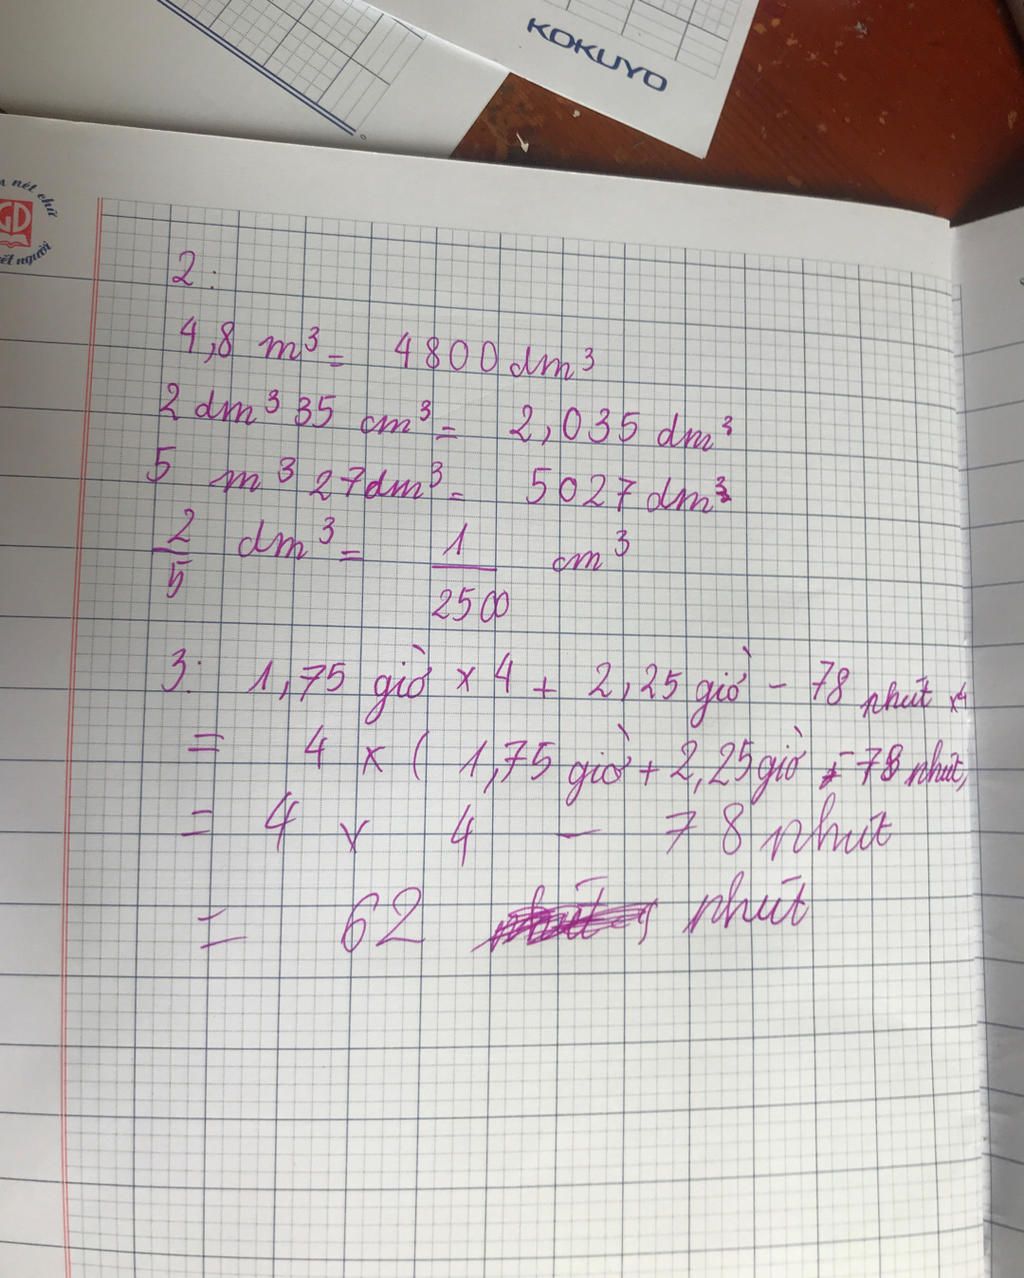 KOKUYO
nét chữ
GD
nết người
2:
4,8 m³ = 4800 dm³
2 dm³ 35 cm³ = 2,035 dm³
5 m³ 27dm³ = 5027 dm³
2/5 dm³ = 1/2500 cm³
3: 1,75 giờ × 4 + 2,25 giờ - 78 phút ×4
= 4 × ( 1,75 giờ + 2,25 giờ - 78 phút)
= 4 × 4 - 78 phút
= 62 phút